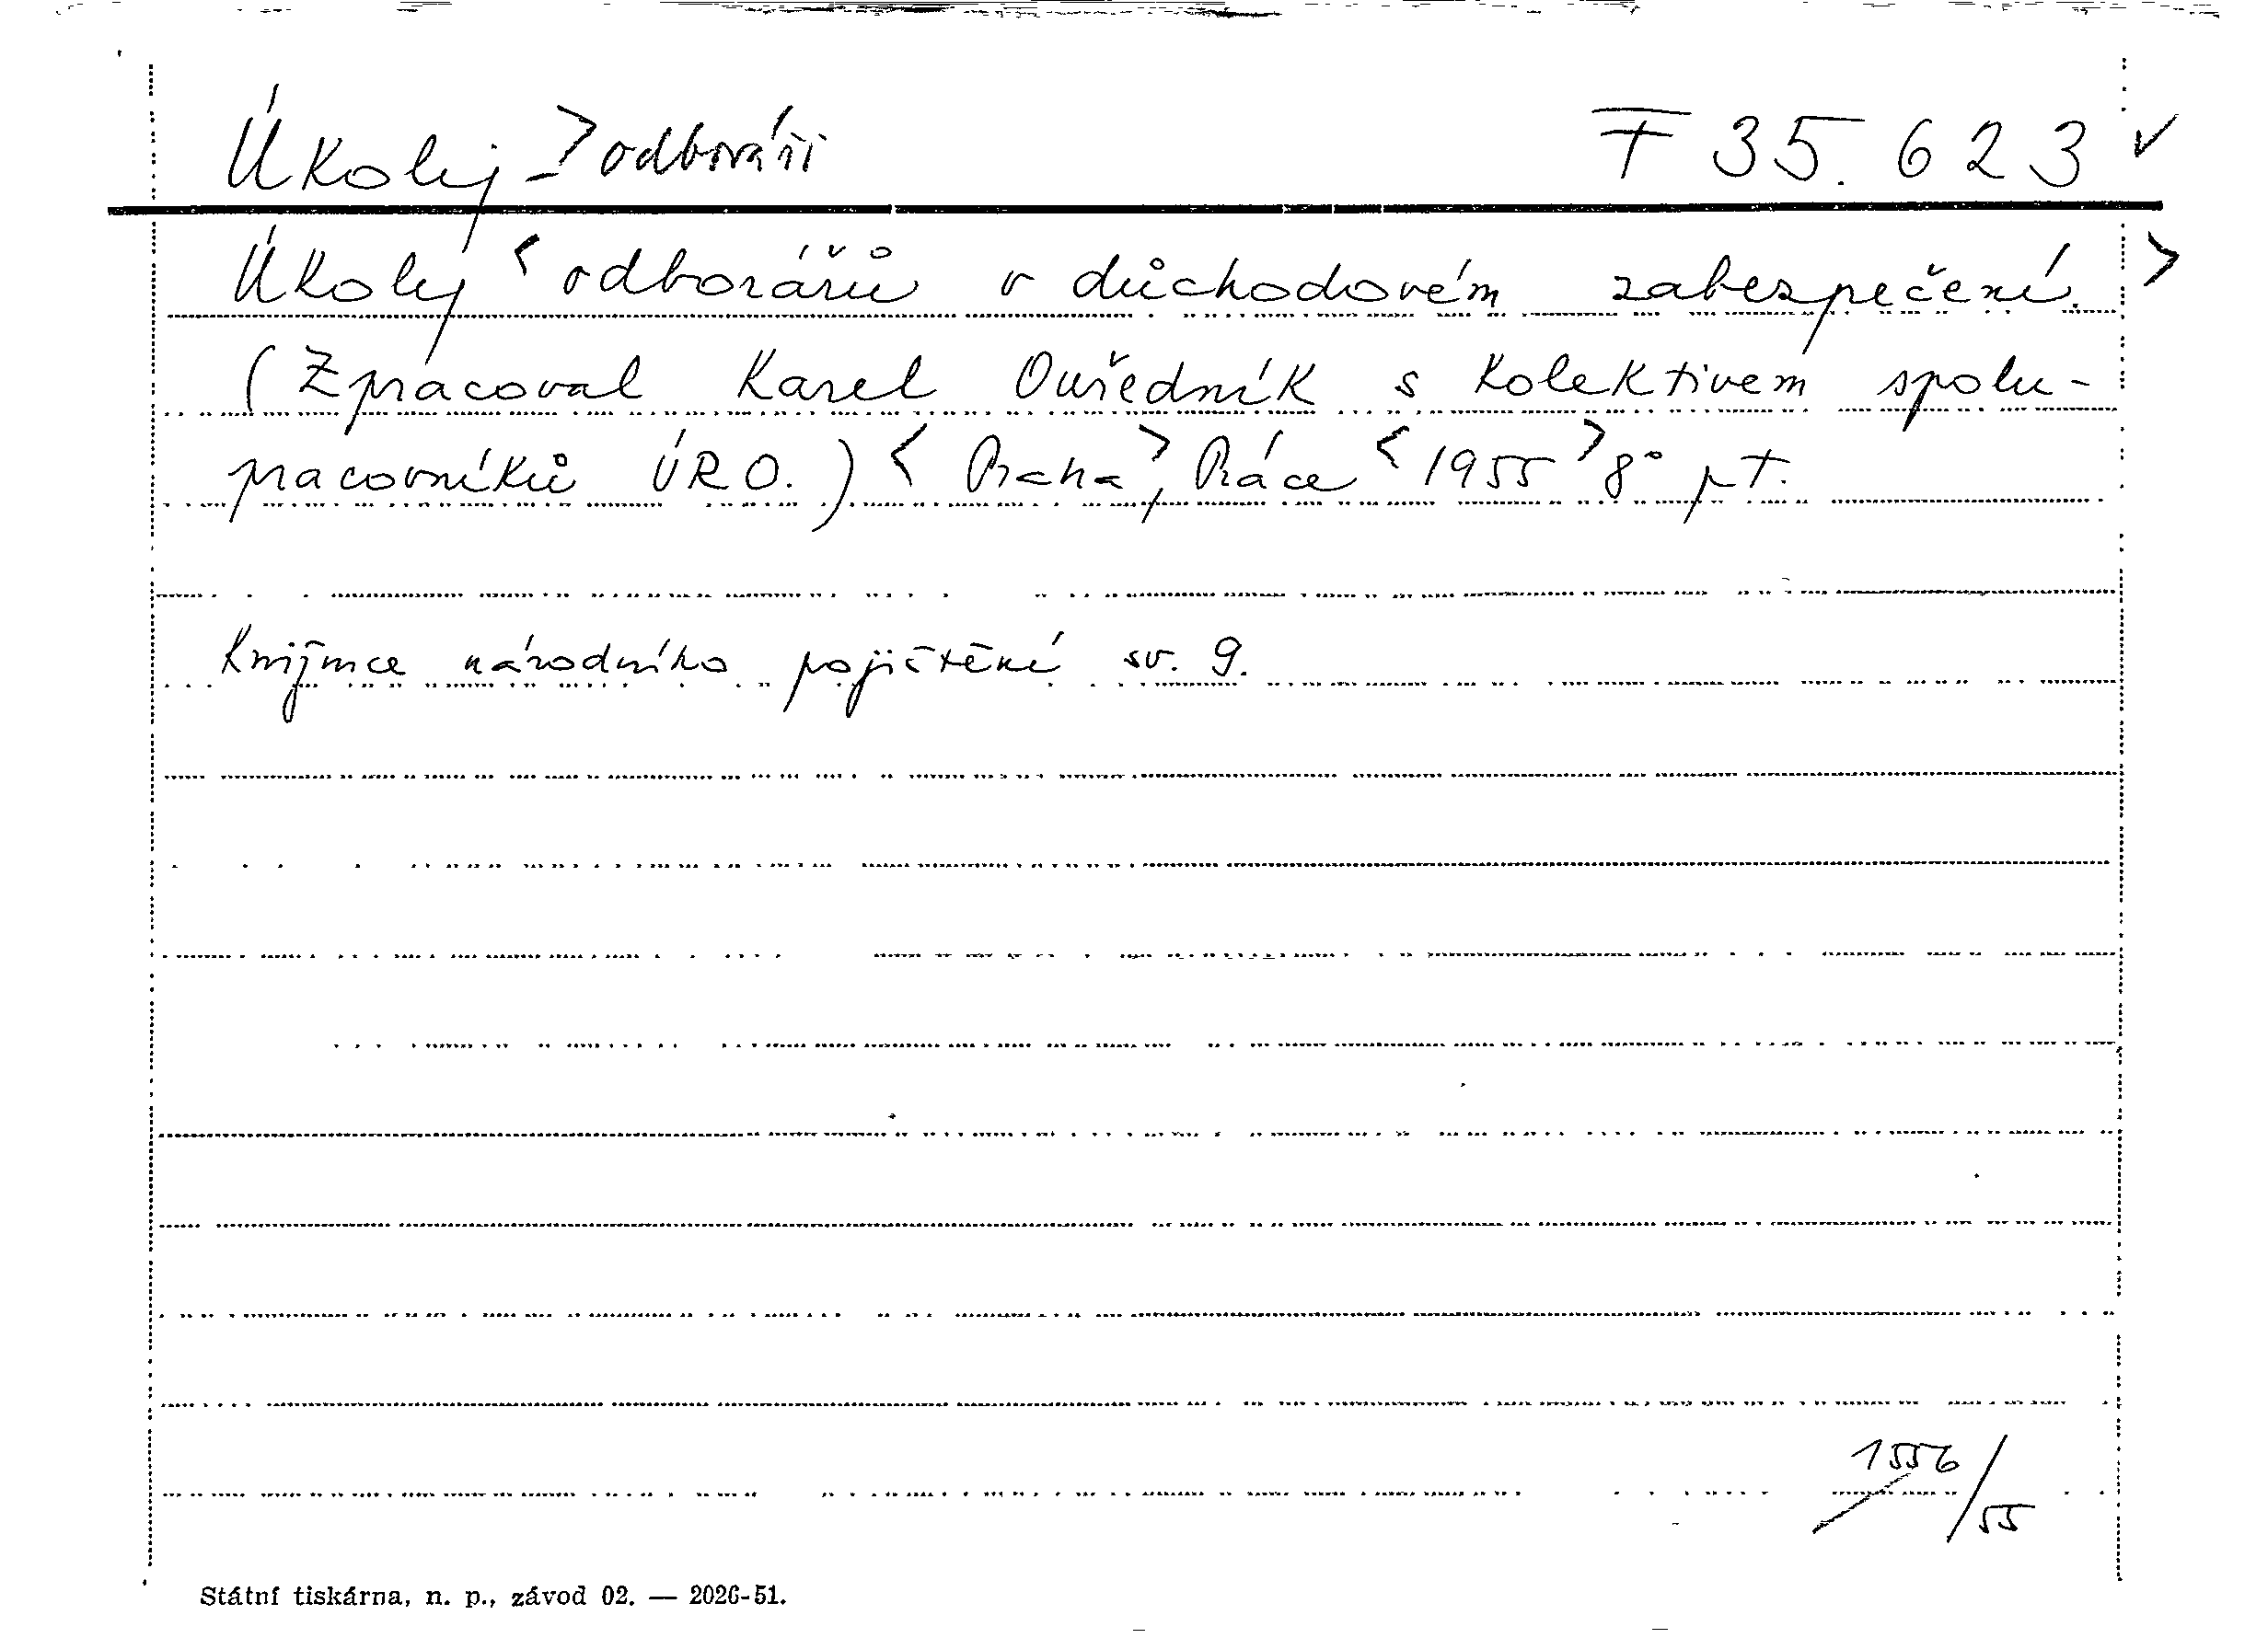 Úkoly -> odboráři F 35.623 ✓
Úkoly < odborářů v důchodovém zabezpečení. >
(Zpracoval Karel Ouředník s kolektivem spolu-
pracovníků ÚRO.) < Praha >, Práce < 1955 > 8° pt.
Knižnice národního pojištění sv. 9.
1556/55
Státní tiskárna, n. p., závod 02. — 2026-51.